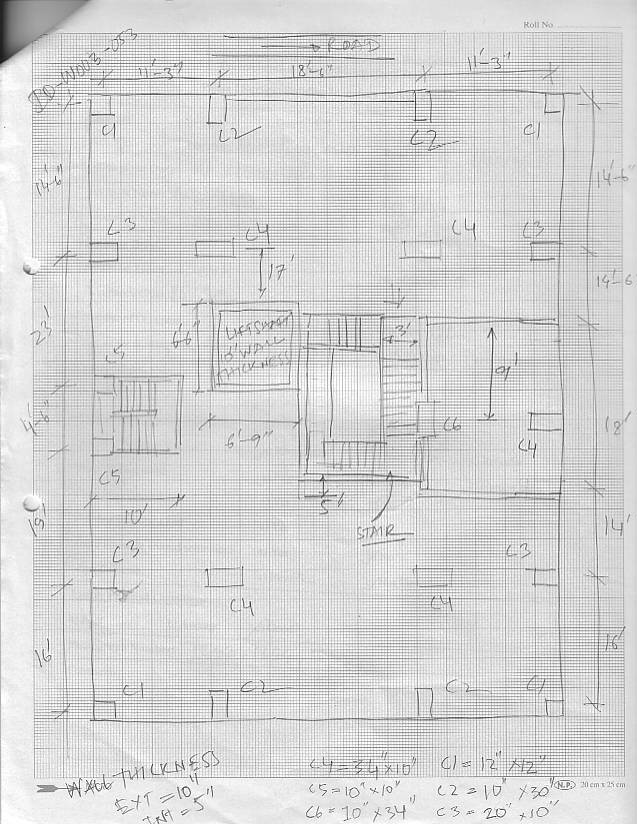 Roll No.
BD-W003-053
→ ROAD
11'-3" 18'-6" 11'-3"
C1 C2 C2 C1
14'-6" 14'-6"
C3 C4 C4 C3
17'
14'-6
23'
6'6"
LIFT SHAFT
10" WALL
THICKNESS
3'
9'
C5
4'-6"
6'-9"
C6
C4
18'
C5
10'
5'
STAIR
19'
14'
C3 C4 C4 C3
16' 16'
C1 C2 C2 C1
WALL THICKNESS
EXT = 10"
INT = 5"
C4 = 34" x 10" C1 = 12" x 12"
C5 = 10" x 10" C2 = 10" x 30"
C6 = 10" x 34" C3 = 20" x 10"
N.P. 20 cm x 25 cm